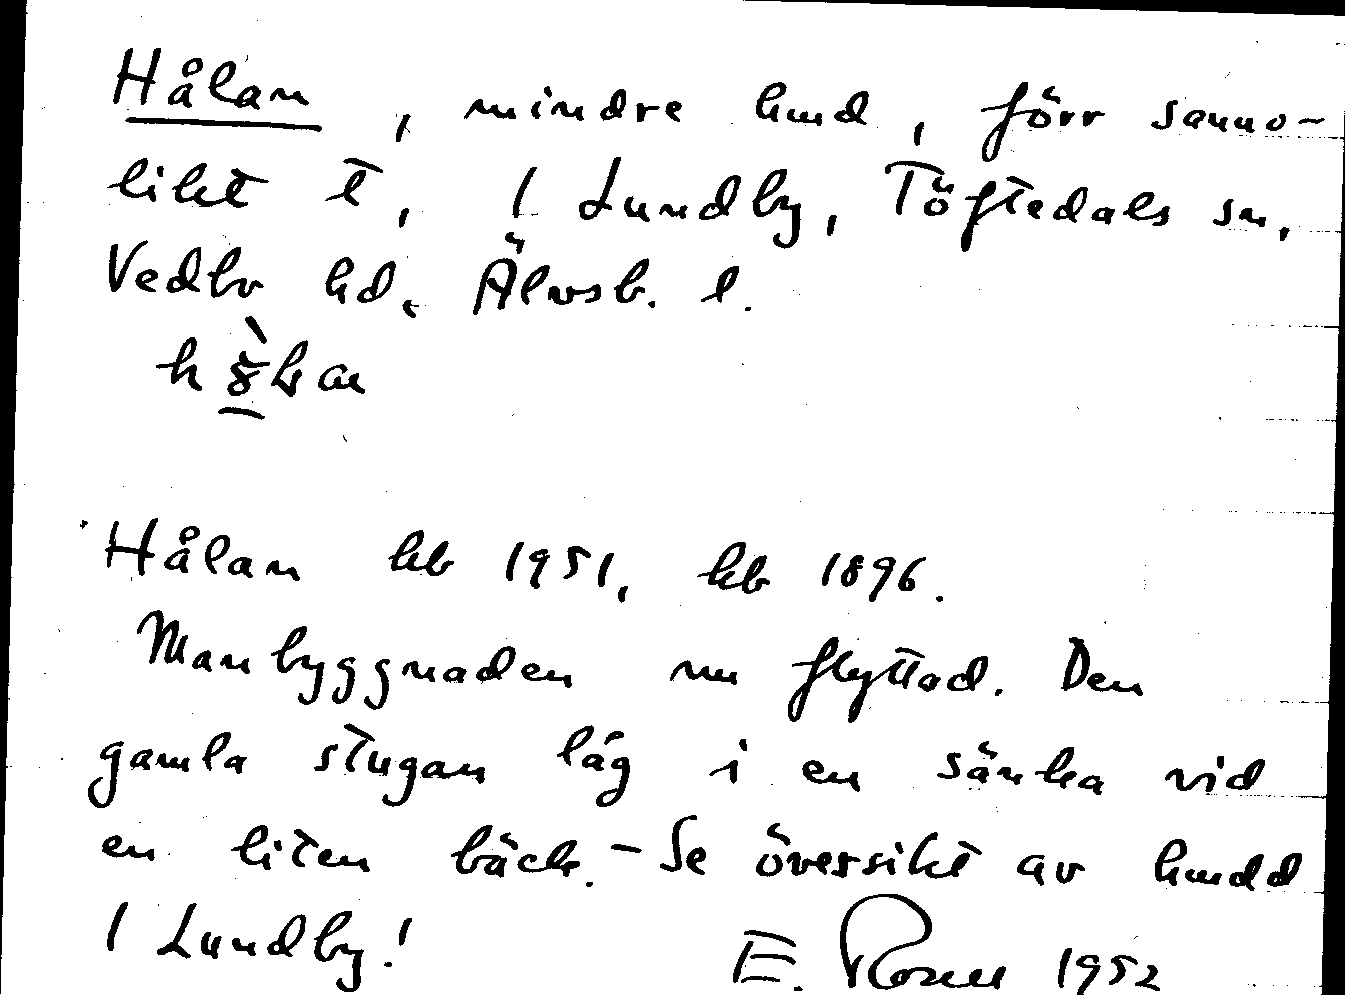 Hålan, mindre hmd, förr sanno-
likt t, 1 Lundby, Töftedals sn,
Vedbo hd, Älvsb. l.
Hålan kb 1951, kb 1896.
Manbyggnaden nu flyttad. Den
gamla stugan låg i en sänka vid
en liten bäck. - Se översikt av hmdd
1 Lundby!
E. Rosell 1952